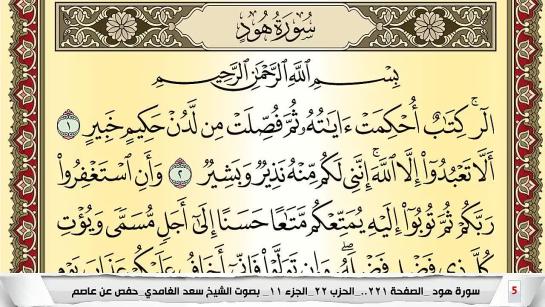 سُورَةُ هُودٍ
بِسْمِ اللَّهِ الرَّحْمَٰنِ الرَّحِيمِ
الٓر ۚ كِتَٰبٌ أُحْكِمَتْ ءَايَٰتُهُۥ ثُمَّ فُصِّلَتْ مِن لَّدُنْ حَكِيمٍ خَبِيرٍ ١
أَلَّا تَعْبُدُوٓا۟ إِلَّا ٱللَّهَ ۚ إِنَّنِى لَكُم مِّنْهُ نَذِيرٌ وَبَشِيرٌ ٢ وَأَنِ ٱسْتَغْفِرُوا۟
رَبَّكُمْ ثُمَّ تُوبُوٓا۟ إِلَيْهِ يُمَتِّعْكُم مَّتَٰعًا حَسَنًا إِلَىٰٓ أَجَلٍ مُّسَمًّى وَيُؤْتِ
كُلَّ ذِى فَضْلٍ فَضْلَهُۥ ۖ وَإِن تَوَلَّوْا۟ فَإِنِّىٓ أَخَافُ عَلَيْكُمْ عَذَابَ يَوْمٍ
5 سورة هود _الصفحة ٢٢١.._الحزب ٢٢ _الجزء ١١_ بصوت الشيخ سعد الغامدي_حفص عن عاصم